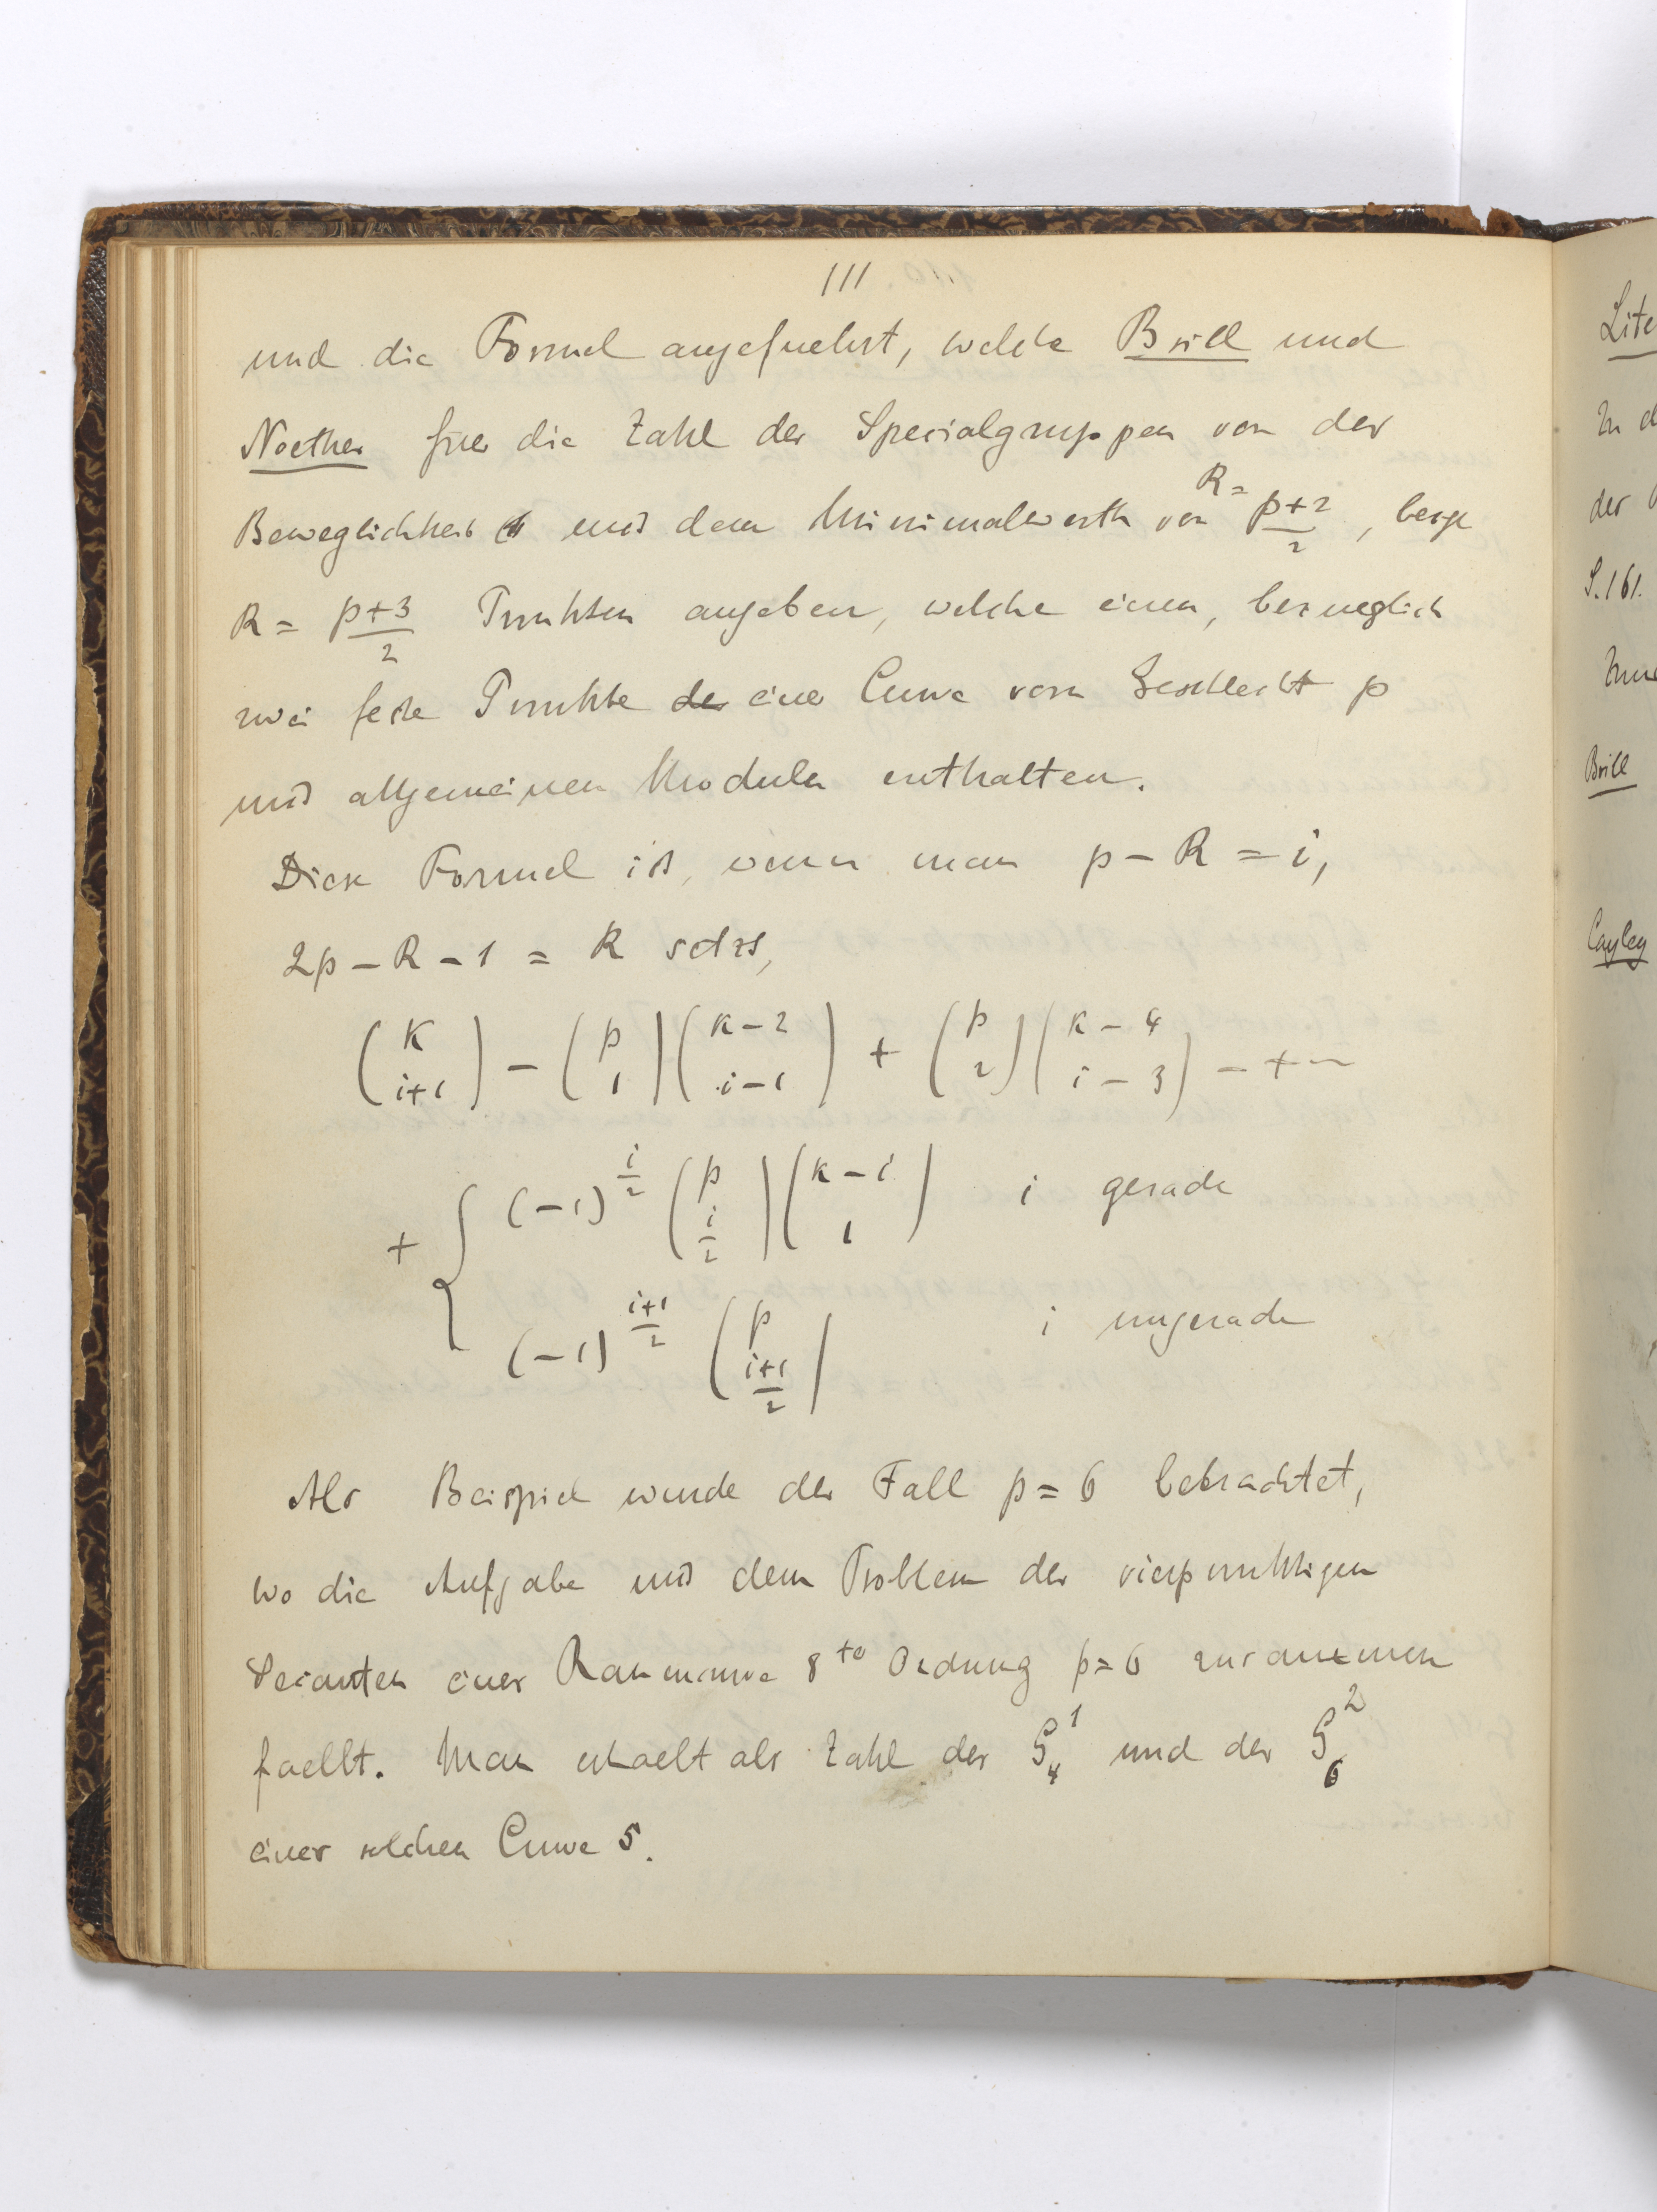 111
und die Formel angefuehrt, welche Brill und
Noether fuer die Zahl der Specialgruppen von der
Beweglichkeit 1 mit dem Minimalwerth von R = p+2/2, bezgl
R = p+3/2 Punkten angeben, welche einen, bezueglich
zwei feste Punkte der einer Curve vom Geschlecht p
mit allgemeinen Moduln enthalten.
Diese Formel ist, wenn man p – R = i,
2p – R – 1 = K setzt,
(K i+1) – (p 1)(K–2 i–1) + (p 2)(K–4 i–3) – + –
+ { (–1)^{i/2} (p i/2)(K–i 1) i gerade
(–1)^{i+1/2} (p i+1/2) i ungerade
Als Beispiel wurde der Fall p = 6 betrachtet,
wo die Aufgabe mit dem Problem der vierpunktigen
Secanten einer Raumcurve 8ter Ordnung p=6 zusammen
faellt. Man erhaelt als Zahl der G_4^1 und der G_6^2
einer solchen Curve 5.
Lite
In d
der
S.161.
Brill
Cayley